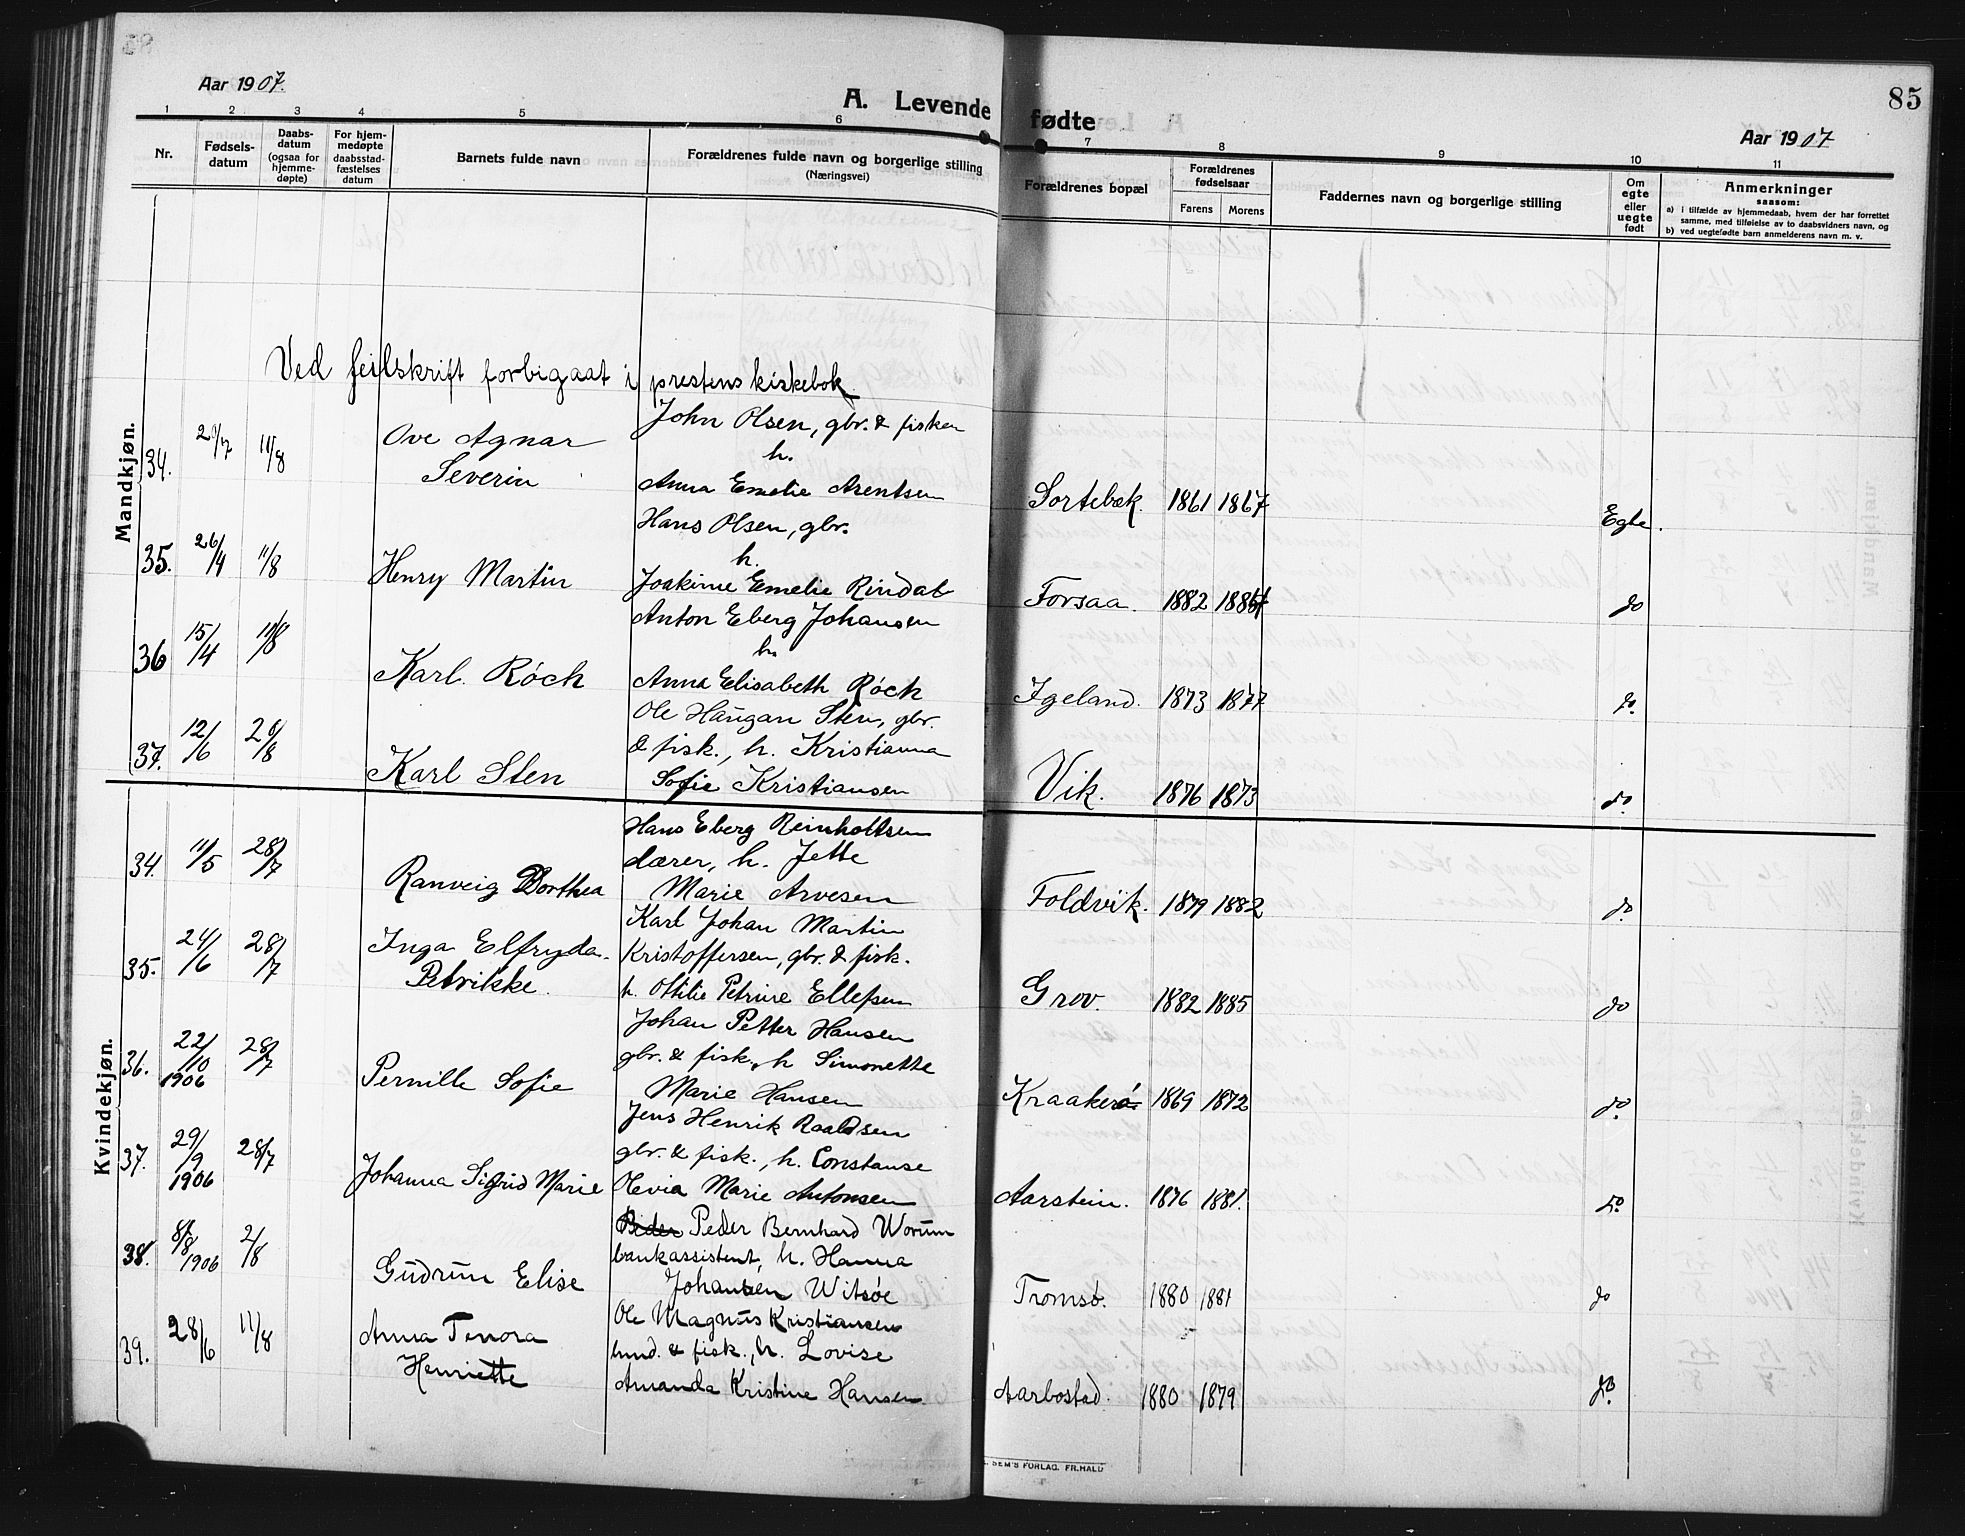 85
Aar 1907.
A. Levende fødte
Aar 1907
1 2 3 4 5 6 7 8 9 10 11
Nr.
Fødsels-
datum
Daabs-
datum
(ogsaa for
hjemme-
døpte)
For hjem-
medøpte
daabsstad-
fæstelses
datum
Barnets fulde navn
Forældrenes fulde navn og borgerlige stilling
(Næringsvei)
Forældrenes bopæl
Forældrenes
fødselsaar
Farens Morens
Faddernes navn og borgerlige stilling
Om
egte
eller
uegte
født
Anmerkninger
saasom:
a) i tilfælde av hjemmedaab, hvem der har forrettet
samme, med tilføielse av to daabsvidners navn, og
b) ved uegtefødte barn anmelderens navn m. v.
Ved feilskrift forbigaat i prestens kirkebok
Mandkjøn.
John Olsen, gbr. & fisker
34. 11/8 Ove Agnar h.
Severin Anna Emelie Arentsen Sortebæk. 1861 1867 Egte.
Hans Olsen, gbr.
35. 26/4 11/8 Henry Martin h.
Joakime Emelie Rindal Forsaa. 1882 do
Anton Eberg Johansen
36 15/4 h.
Karl Røch Anna Elisabeth Røch Igeland. 1873 1877 do.
Ole Haugan Sten, gbr.
37. 12/6 & fisk., h. Kristianna
Karl Sten Sofie Kristiansen Vik. 1876 1873 do
Kvindekjøn.
Hans Eberg Reinholtsen
34. 11/5 28/7 h. Jette
Ranveig Dorthea Marie Arvesen Foldvik. 1879 1882 do
Karl Johan Martin
35. 24/6 28/7 Inga Elfryda Kristoffersen, gbr. & fisk.
Petrikke h. Ottilie Petrine Ellefsen Grov. 1882 1885 do
Johan Petter Hansen
36. 22/10 28/7 gbr. & fisk., h Simonette
1906 Pernille Sofie Marie Hansen Kraakerø 1869 1872 do
Jens Henrik Roaldsen
37. 29/9 28/7 gbr. & fisk., h. Constanse
1906 Johanna Sigrid Marie Olevia Marie Antonsen Aarstein. 1876 1881. do
Peder Bernhard Worum
38. 8/8 1906 2/8 bankassistent, h. Hanna
Gudrun Elise Johansen Witsøe Tromsø. 1880 1881 do
Ole Magnus Kristiansen
39. 28/6 11/8 Anna Tenora & fisk., h. Lovise
Henriette Amanda Kristine Hansen. Aarbostad. 1880 1879 do
SEM'S FORLAG. FR.HALD